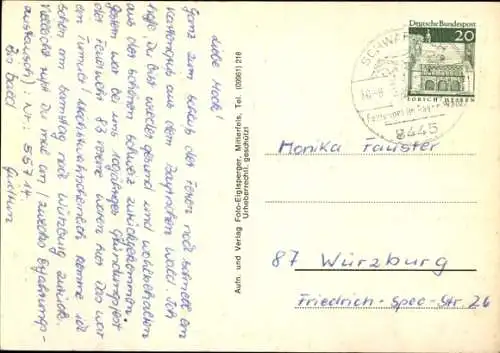 Liebe Moni!
Ganz zum Schluß der Ferien noch schnell ein
Kartengruß aus dem Bayrischen Wald. Ich
hoffe Du bist wieder gesund und wohlbehalten
aus der schönen Schweiz zurückgekommen.
Gestern war bei uns 100jähriges Gründungsfest
der Feuerwehr 83 Vereine waren hier Das war
ein Rummel! Höchstwahrscheinlich komme ich
schon am Samstag nach Würzburg zurück.
Vielleicht rufst Du mal an (zwecks Erfahrungs-
austausch): Nr.: 55714.
Bis bald
Gudrun
Aufn. und Verlag Foto-Eiglsperger, Mitterfels, Tel. (09961) 216
Urheberrechtl. geschützt
Deutsche Bundespost
20
LORSCH HESSEN
SCHWAR
8445
Monika Tauster
87 Würzburg
Friedrich-Spee-Str. 26